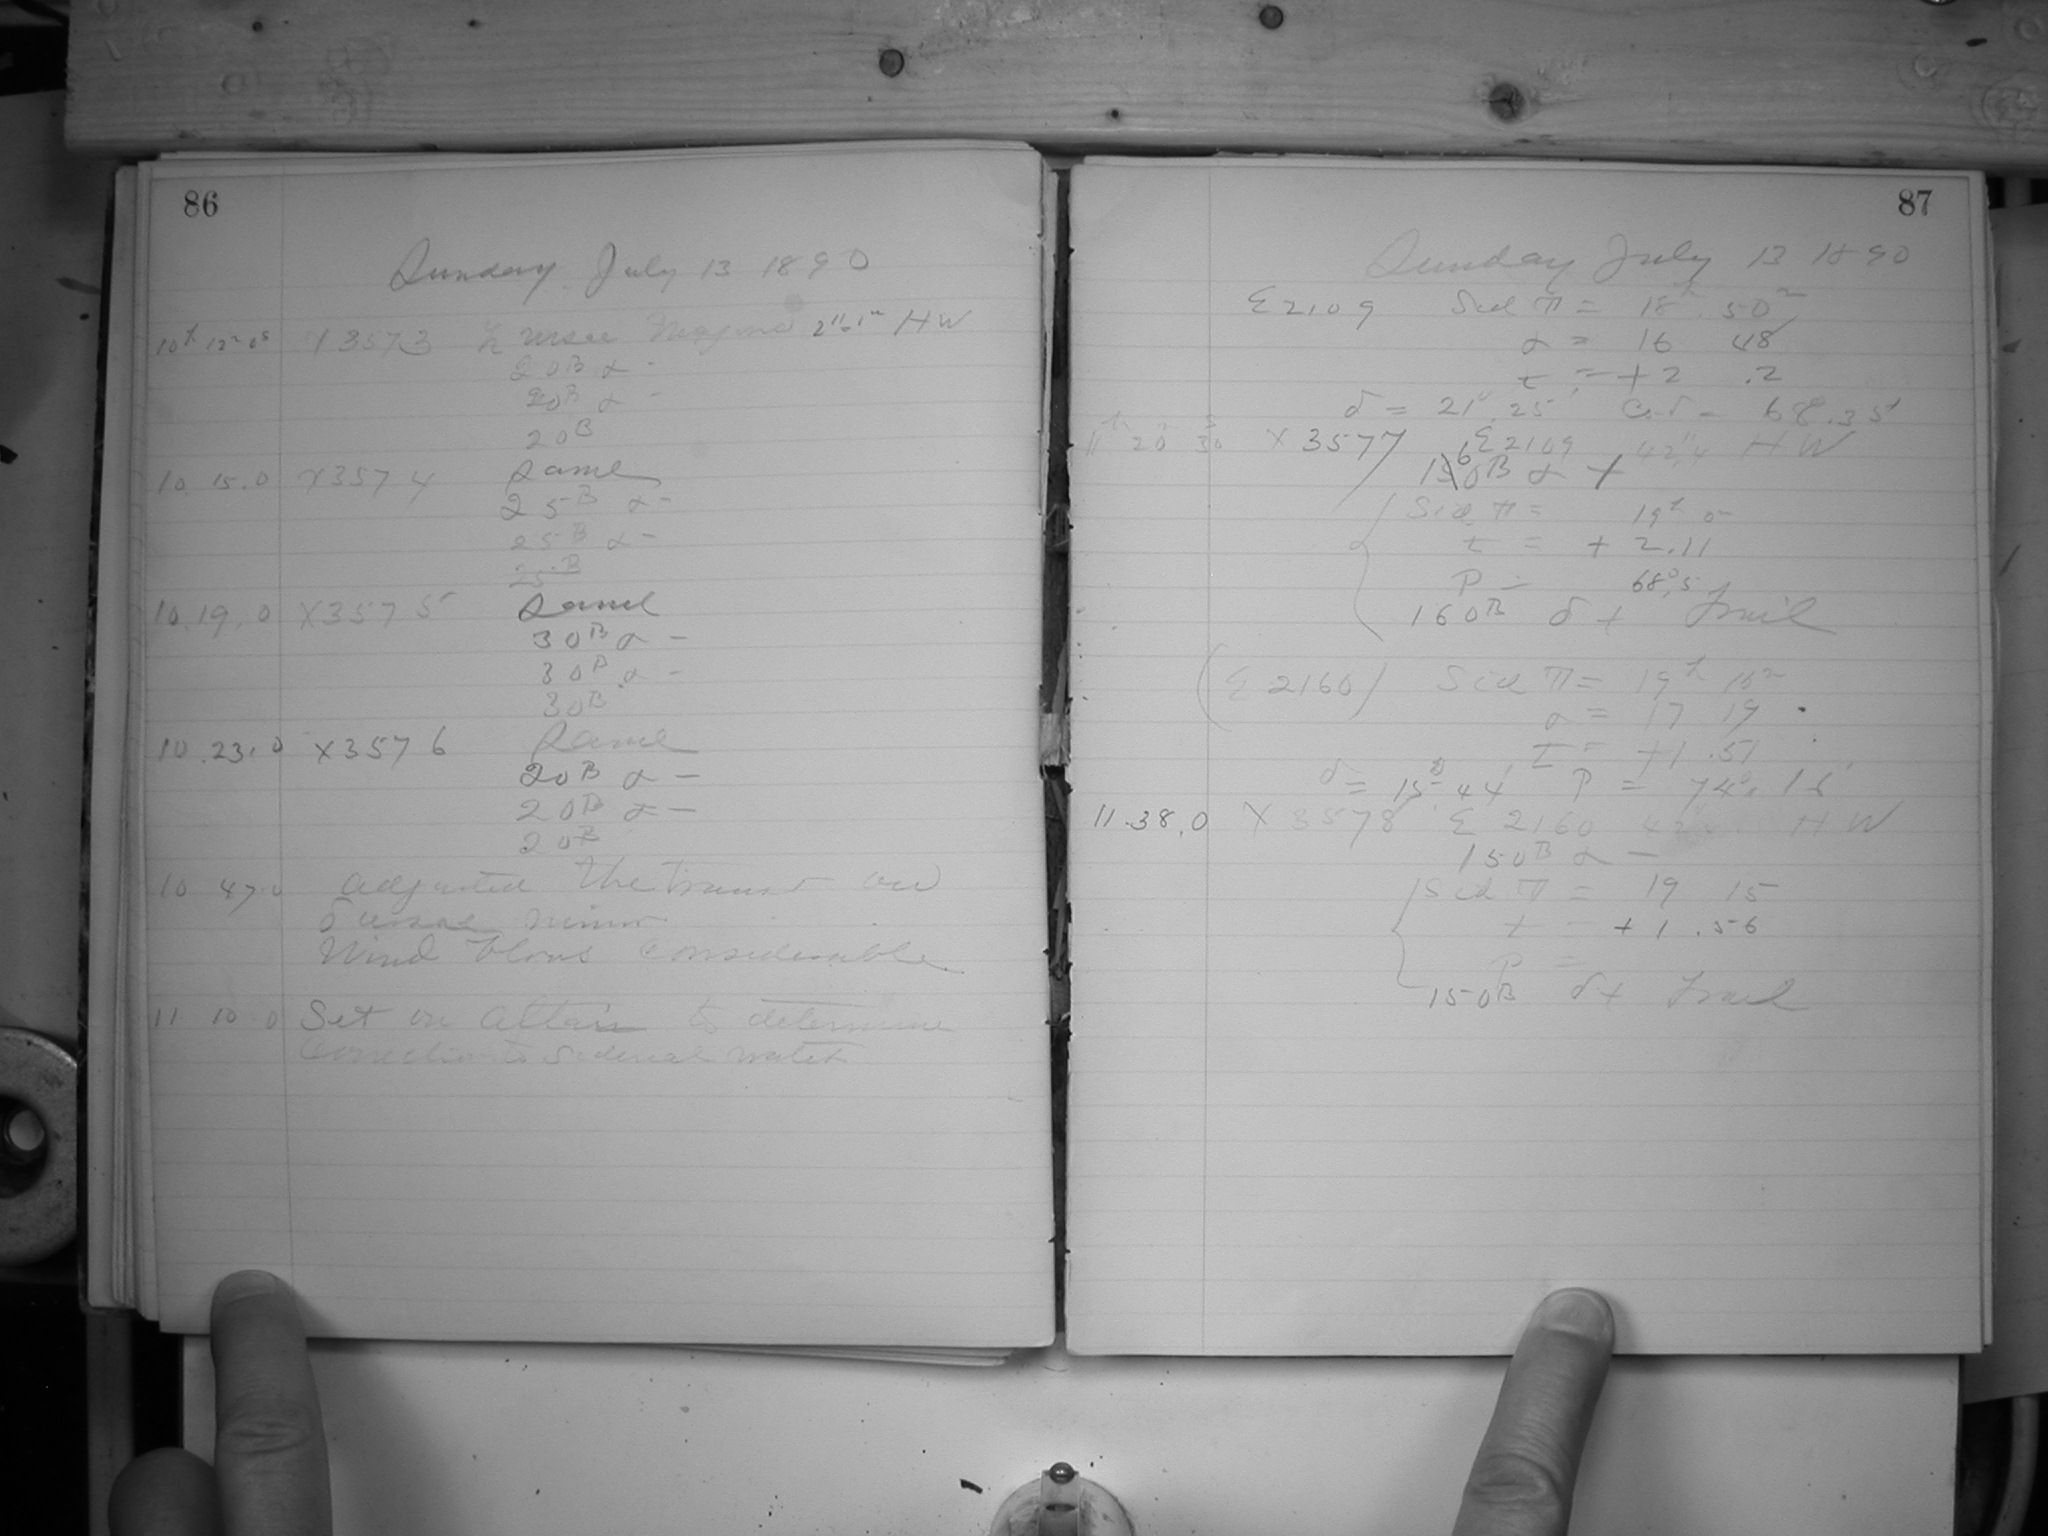 86
Sunday July 13 1890
10h 12m 0s X3573 ζ Ursae Majoris HW
20B α -
20B α -
20B
10. 15. 0 X3574 Same
25B α -
25B α -
25B
10. 19. 0 X3575 Same
30B α -
30B α -
30B
10. 23. 0 X3576 Same
20B α -
20B α -
20B
10 47 0 adjusted the transit on
δ ursae minor
Wind blows considerable
11 10 0 Set on Altair to determine
Correction to sidereal watch
87
Sunday July 13 1890
Σ2109 Sid T = 18h. 50m
α = 16 48
t = +2 .2
δ = 21°.25' Co. δ = 68°.35'
11h 20m 30s X3577 Σ2109 42",4 HW
160B α +
Sid T = 19h 0m
t = + 2.11
P = 68°,5
160B δ + Trail
(Σ 2160) Sid T = 19h 10m
α = 17 19
t = +1 .51
δ = 15°.44' P = 74°. 16
11. 38. 0 X3578 Σ 2160 HW
150B α -
Sid T = 19 15
t = +1 .56
P =
150B δ+ Trail